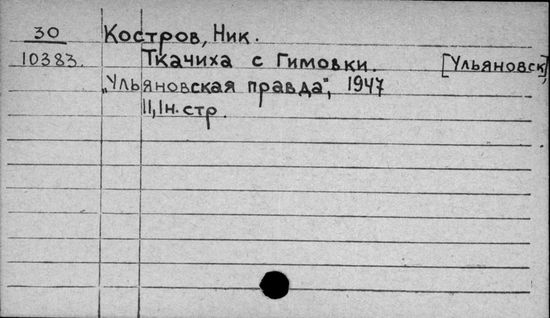 30 Костров, Ник.
10383. Ткачиха с Гимовки. [Ульяновск,
„Ульяновская правда", 1947
II, Iн. стр.